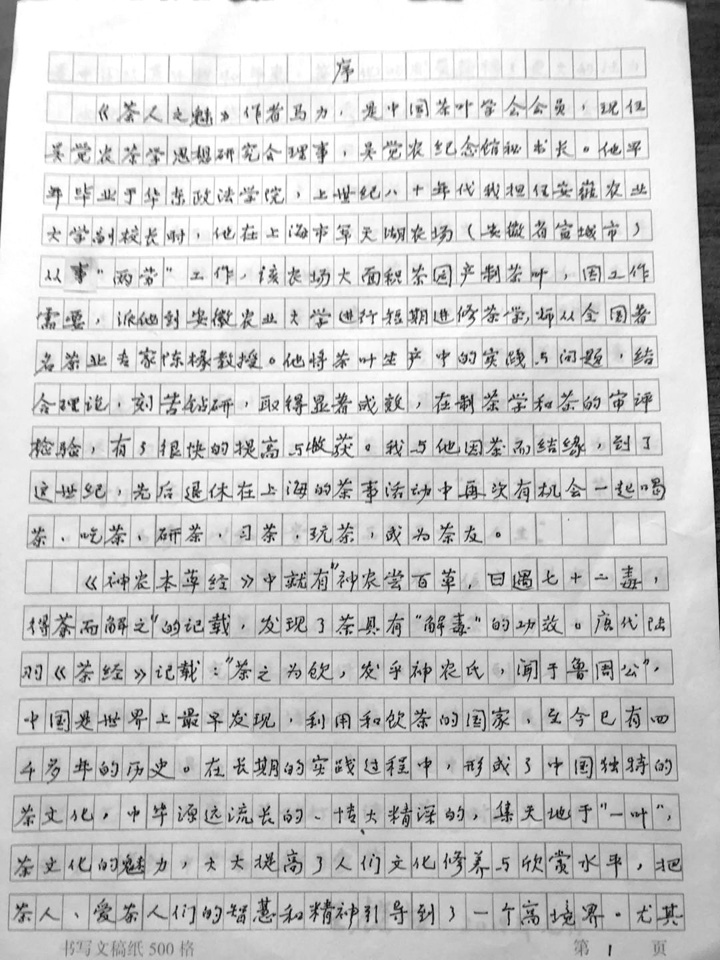 序
《茶人之魅》作者马力，是中国茶叶学会会员，现任
吴觉农茶学思想研究会理事，吴觉农纪念馆秘书长。他早
年毕业于华东政法学院，上世纪八十年代我担任安徽农业
大学副校长时，他在上海市军天湖农场（安徽省宣城市）
从事“两劳”工作，该农场大面积茶园产制茶叶，因工作
需要，派他到安徽农业大学进行短期进修茶学，师从全国著
名茶业专家陈椽教授。他将茶叶生产中的实践与问题，结
合理论，刻苦钻研，取得显著成效，在制茶学和茶的审评
检验，有了很快的提高与收获。我与他因茶而结缘，到了
这世纪，先后退休在上海的茶事活动中再次有机会一起喝
茶、吃茶、研茶、习茶、玩茶，成为茶友。
《神农本草经》中就有“神农尝百草，日遇七十二毒，
得荼而解之”的记载，发现了茶具有“解毒”的功效。唐代陆
羽《茶经》记载：“茶之为饮，发乎神农氏，闻于鲁周公”，
中国是世界上最早发现，利用和饮茶的国家，至今已有四
千多年的历史。在长期的实践过程中，形成了中国独特的
茶文化，中华源远流长的、博大精深的，集天地于“一叶”，
茶文化的魅力，大大提高了人们文化修养与欣赏水平，把
茶人、爱茶人们的智慧和精神引导到了一个高境界。尤其
书写文稿纸500格 第 1 页